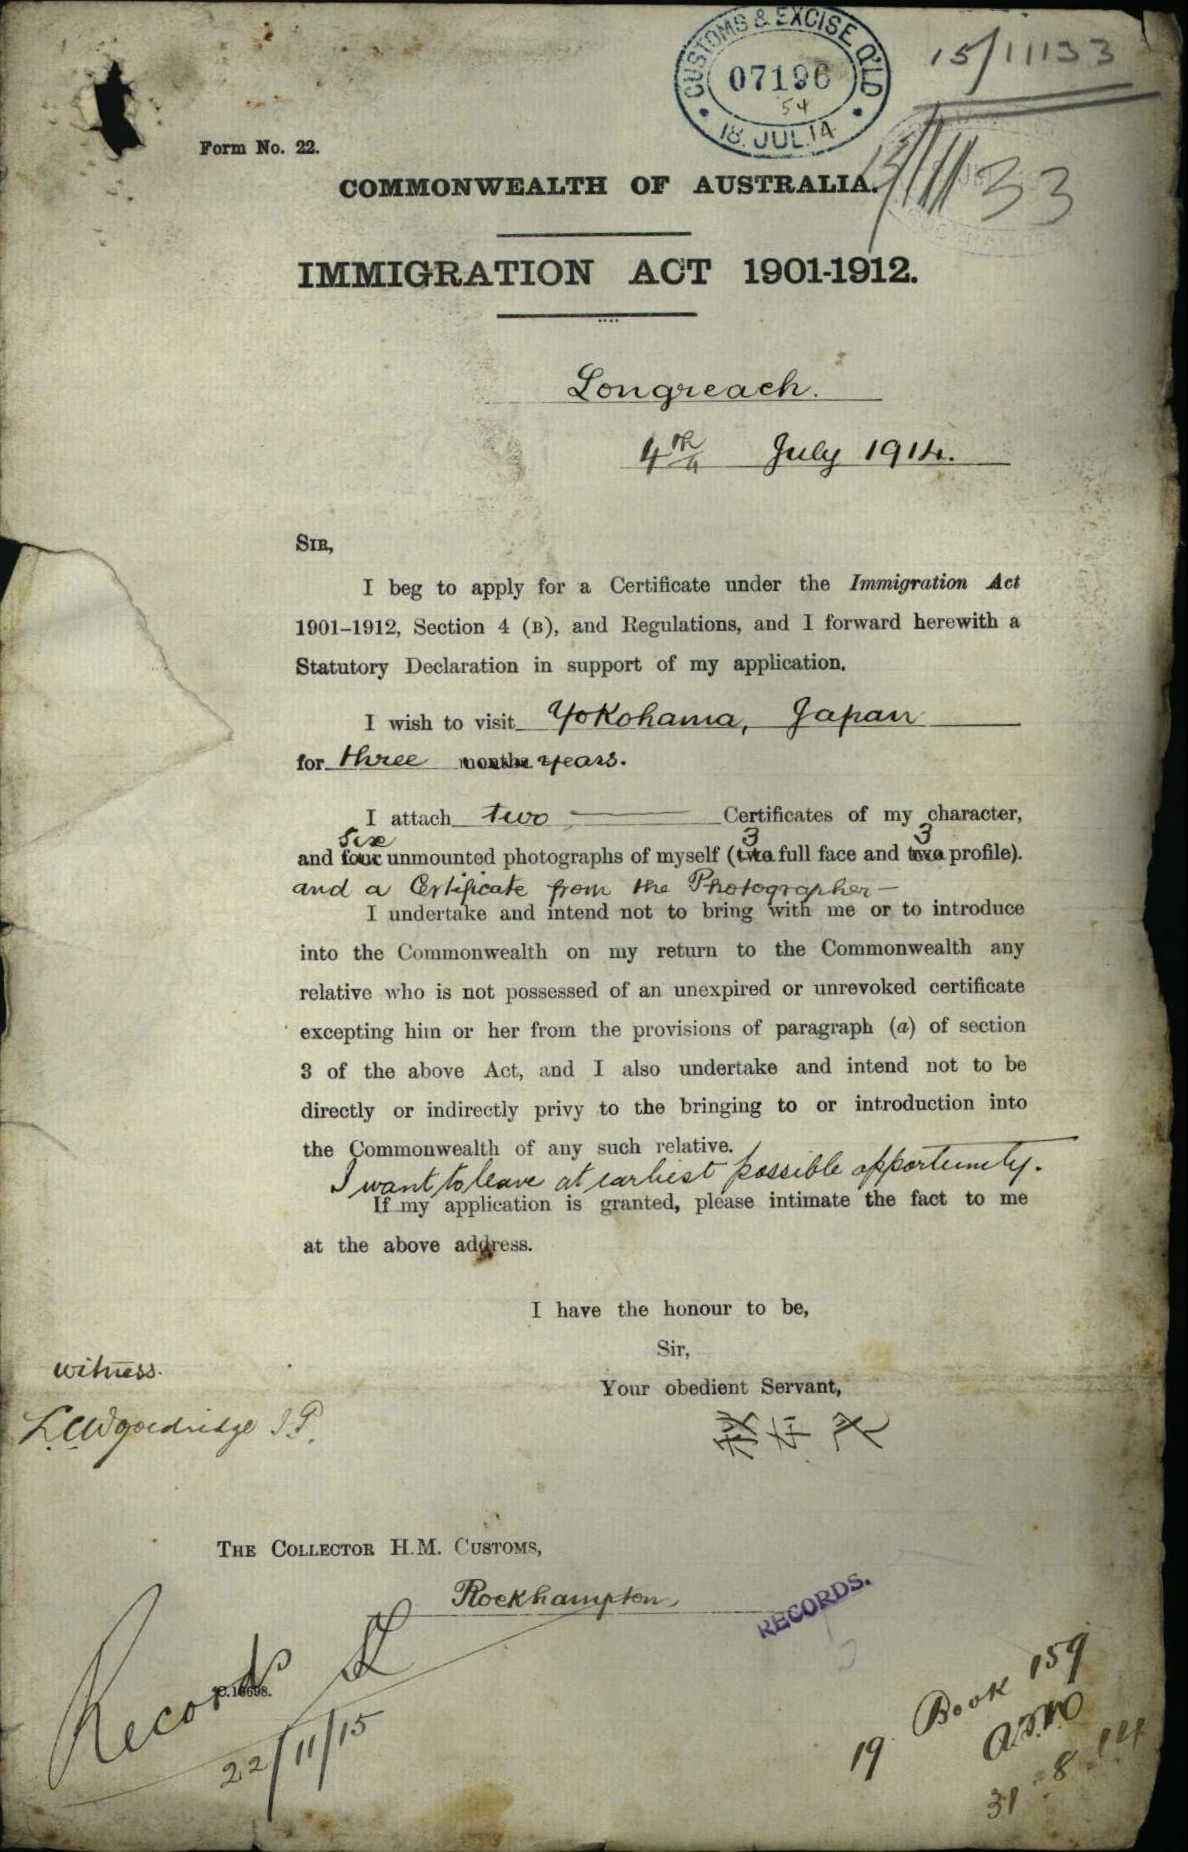 CUSTOMS & EXCISE Q'LD
07196
54
18. JUL. 14
15/11133
Form No. 22.
COMMONWEALTH OF AUSTRALIA.
33
IMMIGRATION ACT 1901-1912.
Longreach.
4th July 1914.
SIR,
I beg to apply for a Certificate under the Immigration Act
1901–1912, Section 4 (B), and Regulations, and I forward herewith a
Statutory Declaration in support of my application.
I wish to visit Yokohama, Japan
for three months years.
I attach two Certificates of my character,
six 3 3
and four unmounted photographs of myself (two full face and two profile).
and a Certificate from the Photographer—
I undertake and intend not to bring with me or to introduce
into the Commonwealth on my return to the Commonwealth any
relative who is not possessed of an unexpired or unrevoked certificate
excepting him or her from the provisions of paragraph (a) of section
3 of the above Act, and I also undertake and intend not to be
directly or indirectly privy to the bringing to or introduction into
the Commonwealth of any such relative.
I want to leave at earliest possible opportunity.
If my application is granted, please intimate the fact to me
at the above address.
I have the honour to be,
Sir,
Your obedient Servant,
witness.
J.P.
THE COLLECTOR H.M. CUSTOMS,
Rockhampton,
RECORDS.
Records
C.16698.
22/11/15
19 Book 159
31 8 14